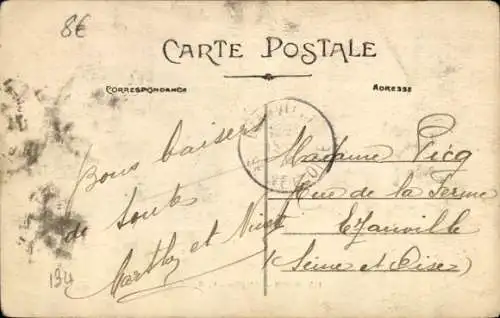 8€
CARTE POSTALE
CORRESPONDANCE
ADRESSE
Bons baisers
de toute
Marthe et
Madame Picq
Rue de la Ferme
Ezanville
(Seine et Oise)
134